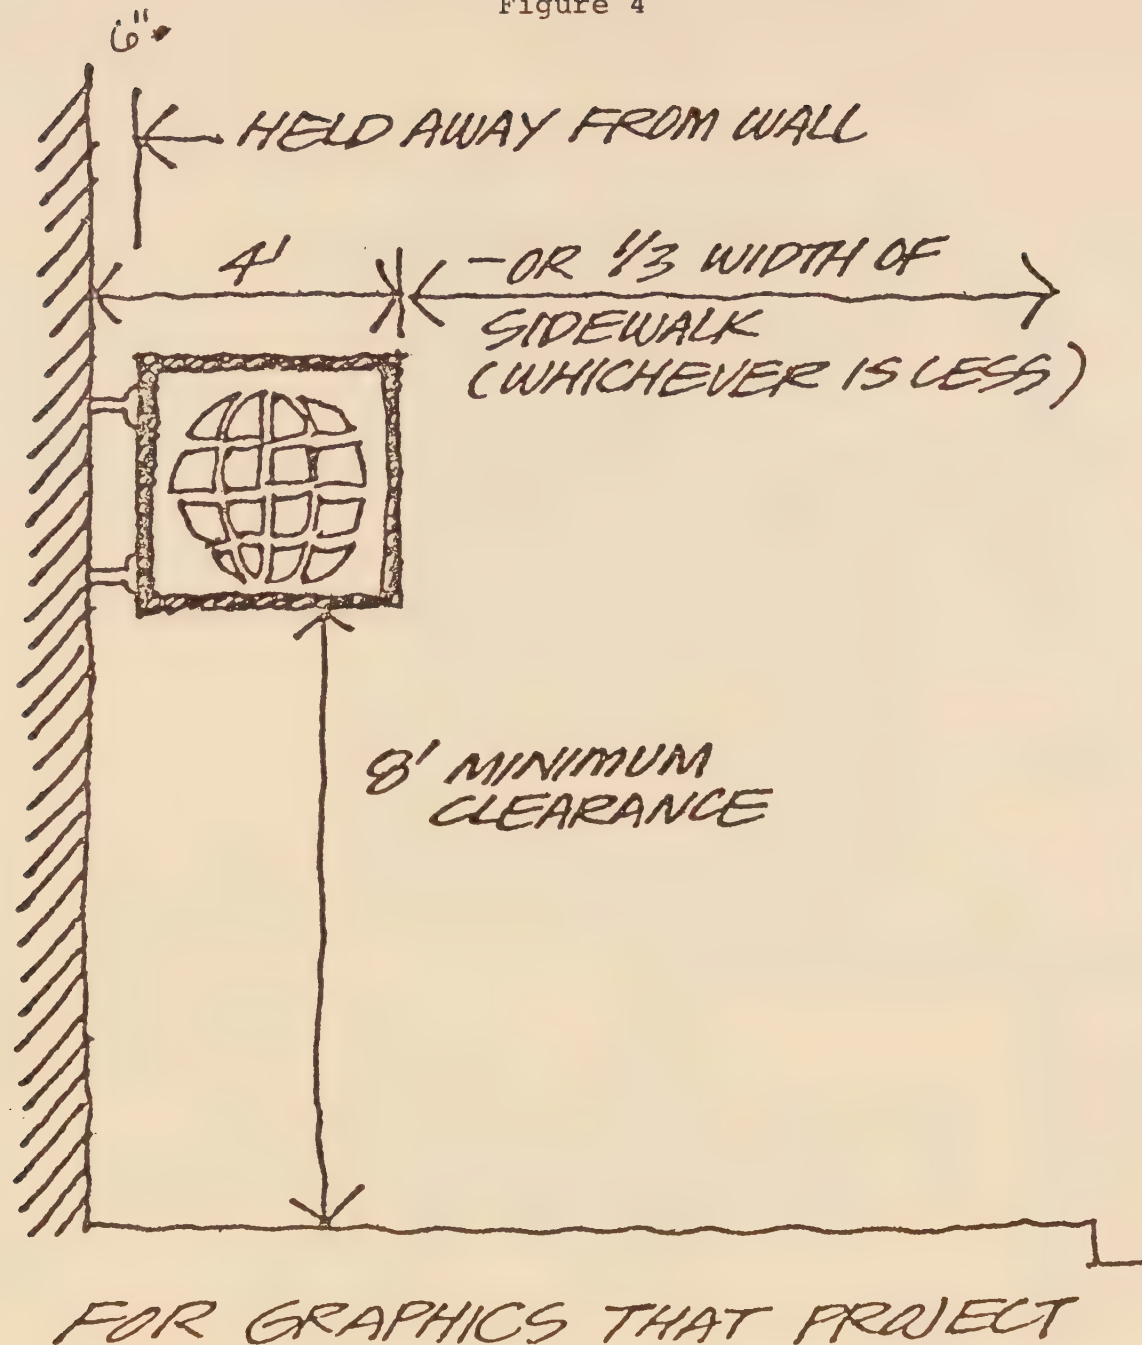 Figure 4
6"
HELD AWAY FROM WALL
4'
-OR 1/3 WIDTH OF
SIDEWALK
(WHICHEVER IS LESS)
8' MINIMUM
CLEARANCE
FOR GRAPHICS THAT PROJECT